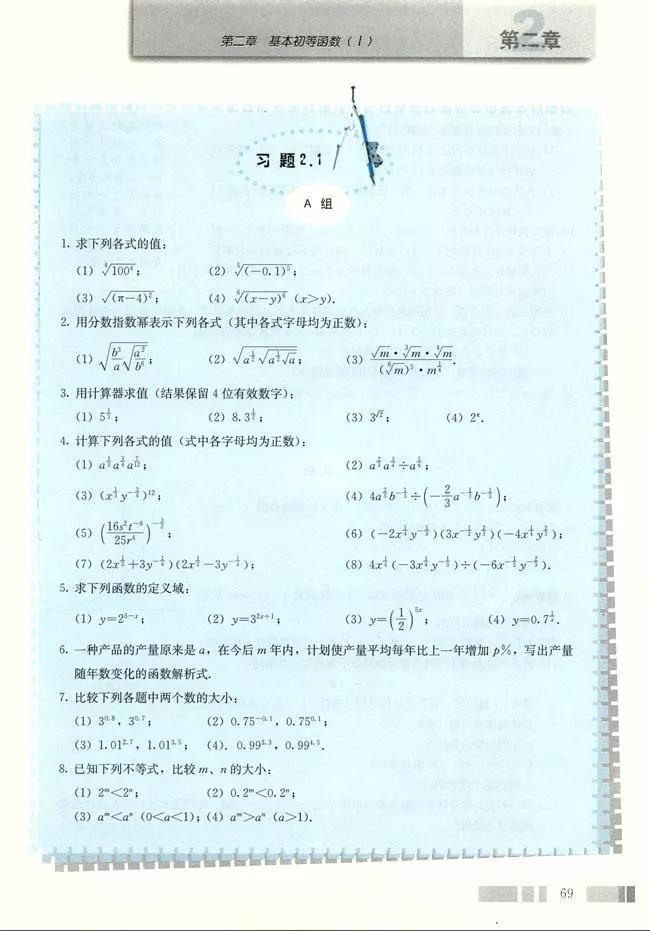 第二章 基本初等函数(Ⅰ)
2
第二章
习题2.1
A 组
1. 求下列各式的值:
(1) ∜(100⁴); (2) ⁵√((−0.1)⁵);
(3) √((π−4)²); (4) ⁶√((x−y)⁶) (x>y).
2. 用分数指数幂表示下列各式(其中各式字母均为正数):
(1) √(b³/a √(a²/b⁶)); (2) √(a^(1/2)√(a^(1/2)√a)); (3) (√m·∛m·∜m)/((⁶√m)⁵·m^(1/4)).
3. 用计算器求值(结果保留 4 位有效数字):
(1) 5^(1/3); (2) 8.3^(1/2); (3) 3^(√2); (4) 2^π.
4. 计算下列各式的值(式中各字母均为正数):
(1) a^(1/3)a^(3/4)a^(7/12); (2) a^(2/3)a^(3/4)÷a^(5/6);
(3) (x^(1/3)y^(−3/4))^12; (4) 4a^(2/3)b^(−1/3)÷(−2/3 a^(−1/3)b^(−1/3));
(5) (16s²t^(−6)/25r⁴)^(−3/2); (6) (−2x^(1/4)y^(−1/3))(3x^(−1/2)y^(2/3))(−4x^(1/4)y^(2/3));
(7) (2x^(1/2)+3y^(−1/4))(2x^(1/2)−3y^(−1/4)); (8) 4x^(1/4)(−3x^(1/4)y^(−1/3))÷(−6x^(−1/2)y^(−2/3)).
5. 求下列函数的定义域:
(1) y=2^(3−x); (2) y=3^(2x+1); (3) y=(1/2)^(5x); (4) y=0.7^(1/x).
6. 一种产品的产量原来是 a,在今后 m 年内,计划使产量平均每年比上一年增加 p%,写出产量
随年数变化的函数解析式.
7. 比较下列各题中两个数的大小:
(1) 3^0.8,3^0.7; (2) 0.75^(−0.1),0.75^0.1;
(3) 1.01^2.7,1.01^3.5; (4). 0.99^3.3,0.99^4.5.
8. 已知下列不等式,比较 m、n 的大小:
(1) 2^m<2^n; (2) 0.2^m<0.2^n;
(3) a^m<a^n (0<a<1); (4) a^m>a^n (a>1).
69